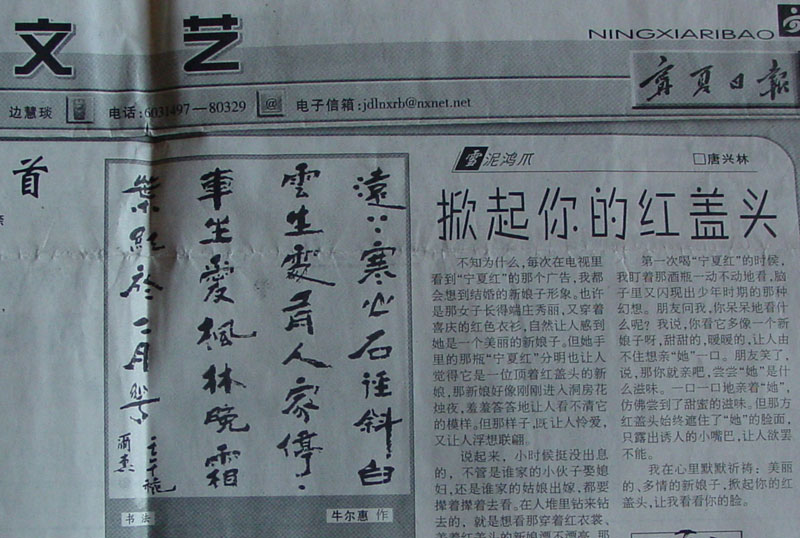 文 艺
NINGXIARIBAO
宁夏日报
边慧琰 电话:6031497—80329 @ 电子信箱:jdlnxrb@nxnet.net
首
遠上寒山石徑斜白
雲生處有人家停
車坐愛楓林晚霜
葉紅於二月花
书法 牛尔惠 作
雪泥鸿爪 □唐兴林
掀起你的红盖头
不知为什么,每次在电视里
看到“宁夏红”的那个广告,我都
会想到结婚的新娘子形象。也许
是那女子长得端庄秀丽,又穿着
喜庆的红色衣衫,自然让人感到
她是一个美丽的新娘。但她手
里的那瓶“宁夏红”分明也让人
觉得它是一位顶着红盖头的新
娘,那新娘好像刚刚进入洞房花
烛夜,羞羞答答地让人看不清它
的模样。但那样子,既让人怜爱,
又让人浮想联翩。
说起来,小时候挺没出息
的,不管是谁家的小伙子娶媳
妇,还是谁家的姑娘出嫁,都要
撵着撵着去看。在人堆里钻来钻
去的,就是想看那穿着红衣裳、
盖着红盖头的新娘漂不漂亮。那
第一次喝“宁夏红”的时候,
我盯着那酒瓶一动不动地看,脑
子里又闪现出少年时期的那种
幻想。朋友问我,你呆呆地看什
么呢?我说,你看它多像一个新
娘子呀,甜甜的,暖暖的,让人由
不住想亲“她”一口。朋友笑了,
说,那你就亲吧,尝尝“她”是什
么滋味。一口一口地亲着“她”,
仿佛尝到了甜蜜的滋味。但那方
红盖头始终遮住了“她”的脸面,
只露出诱人的小嘴巴,让人欲罢
不能。
我在心里默默祈祷:美丽
的、多情的新娘子,掀起你的红
盖头,让我看看你的脸。